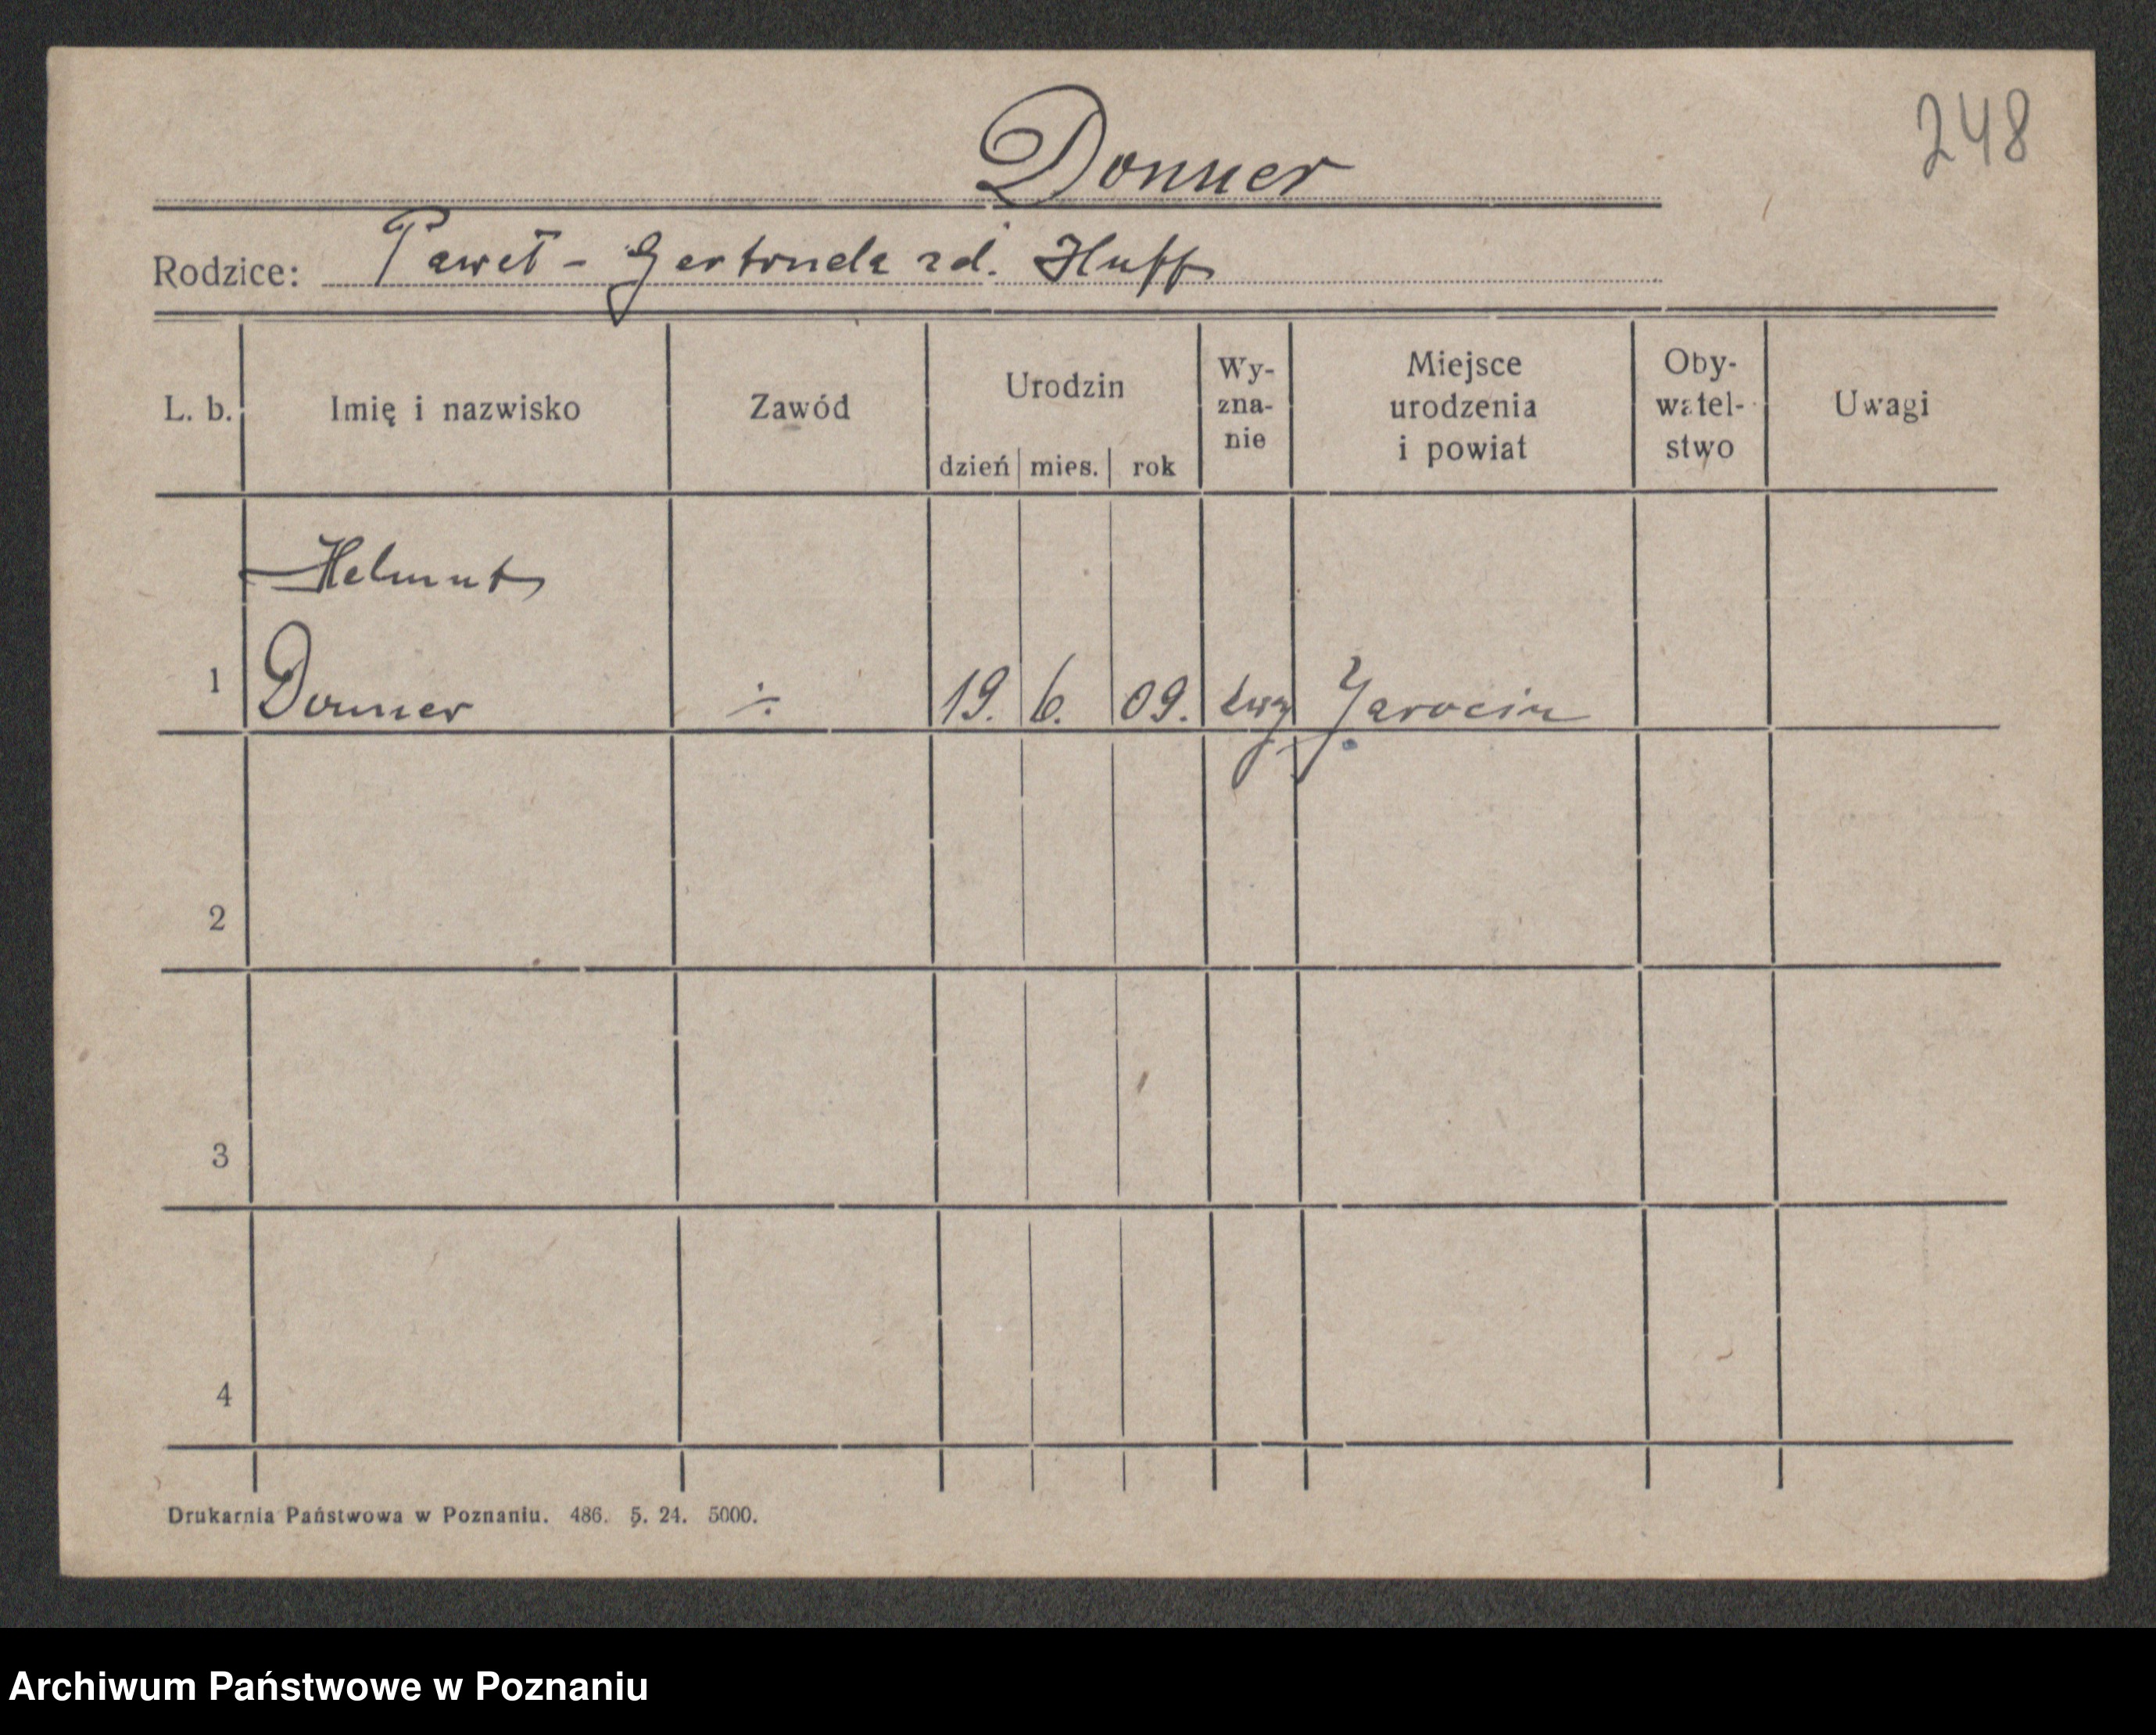 248
Donner
Rodzice: Paweł - Gertruda zd. Huff
L. b. Imię i nazwisko Zawód Urodzin dzień mies. rok Wy-zna-nie Miejsce urodzenia i powiat Oby-watel-stwo Uwagi
Helmut
1 Donner ÷ 19. 6. 09. Jarocin
2
3
4
Drukarnia Państwowa w Poznaniu. 486. 5. 24. 5000.
Archiwum Państwowe w Poznaniu